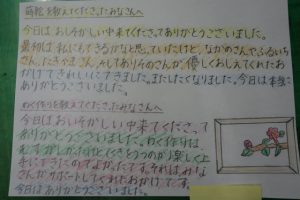 蒔絵を教えてくださったみなさんへ
今日はおいそがしい中来てくださってありがとうございました。
最初は私にもできるかなと思っていたけど、なかのさんやふるいち
さん、たきやまさん、そしてありそのさんが、優しくおしえてくれたお
かげできれいにできました。またしたくなりました。今日は本当に
ありがとうございました。
わく作りを教えてくださったみなさんへ
今日はおいそがしい中来てくださって
ありがとうございました。わく作りは、
むずかしかったけどくぎをうつのが楽しく上
手にできたのでよかったです。それは、みな
さんがサポートしてくれたおかげです。
今日はありがとうございました。